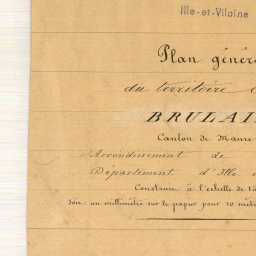 Ille-et-Vilaine
Plan génér
du territoire
BRULAI
Canton de Maure
Arrondissement de
Département d'Ille
Construit à l'échelle de 1 à
Soit un millimètre sur le papier pour 10 mètr